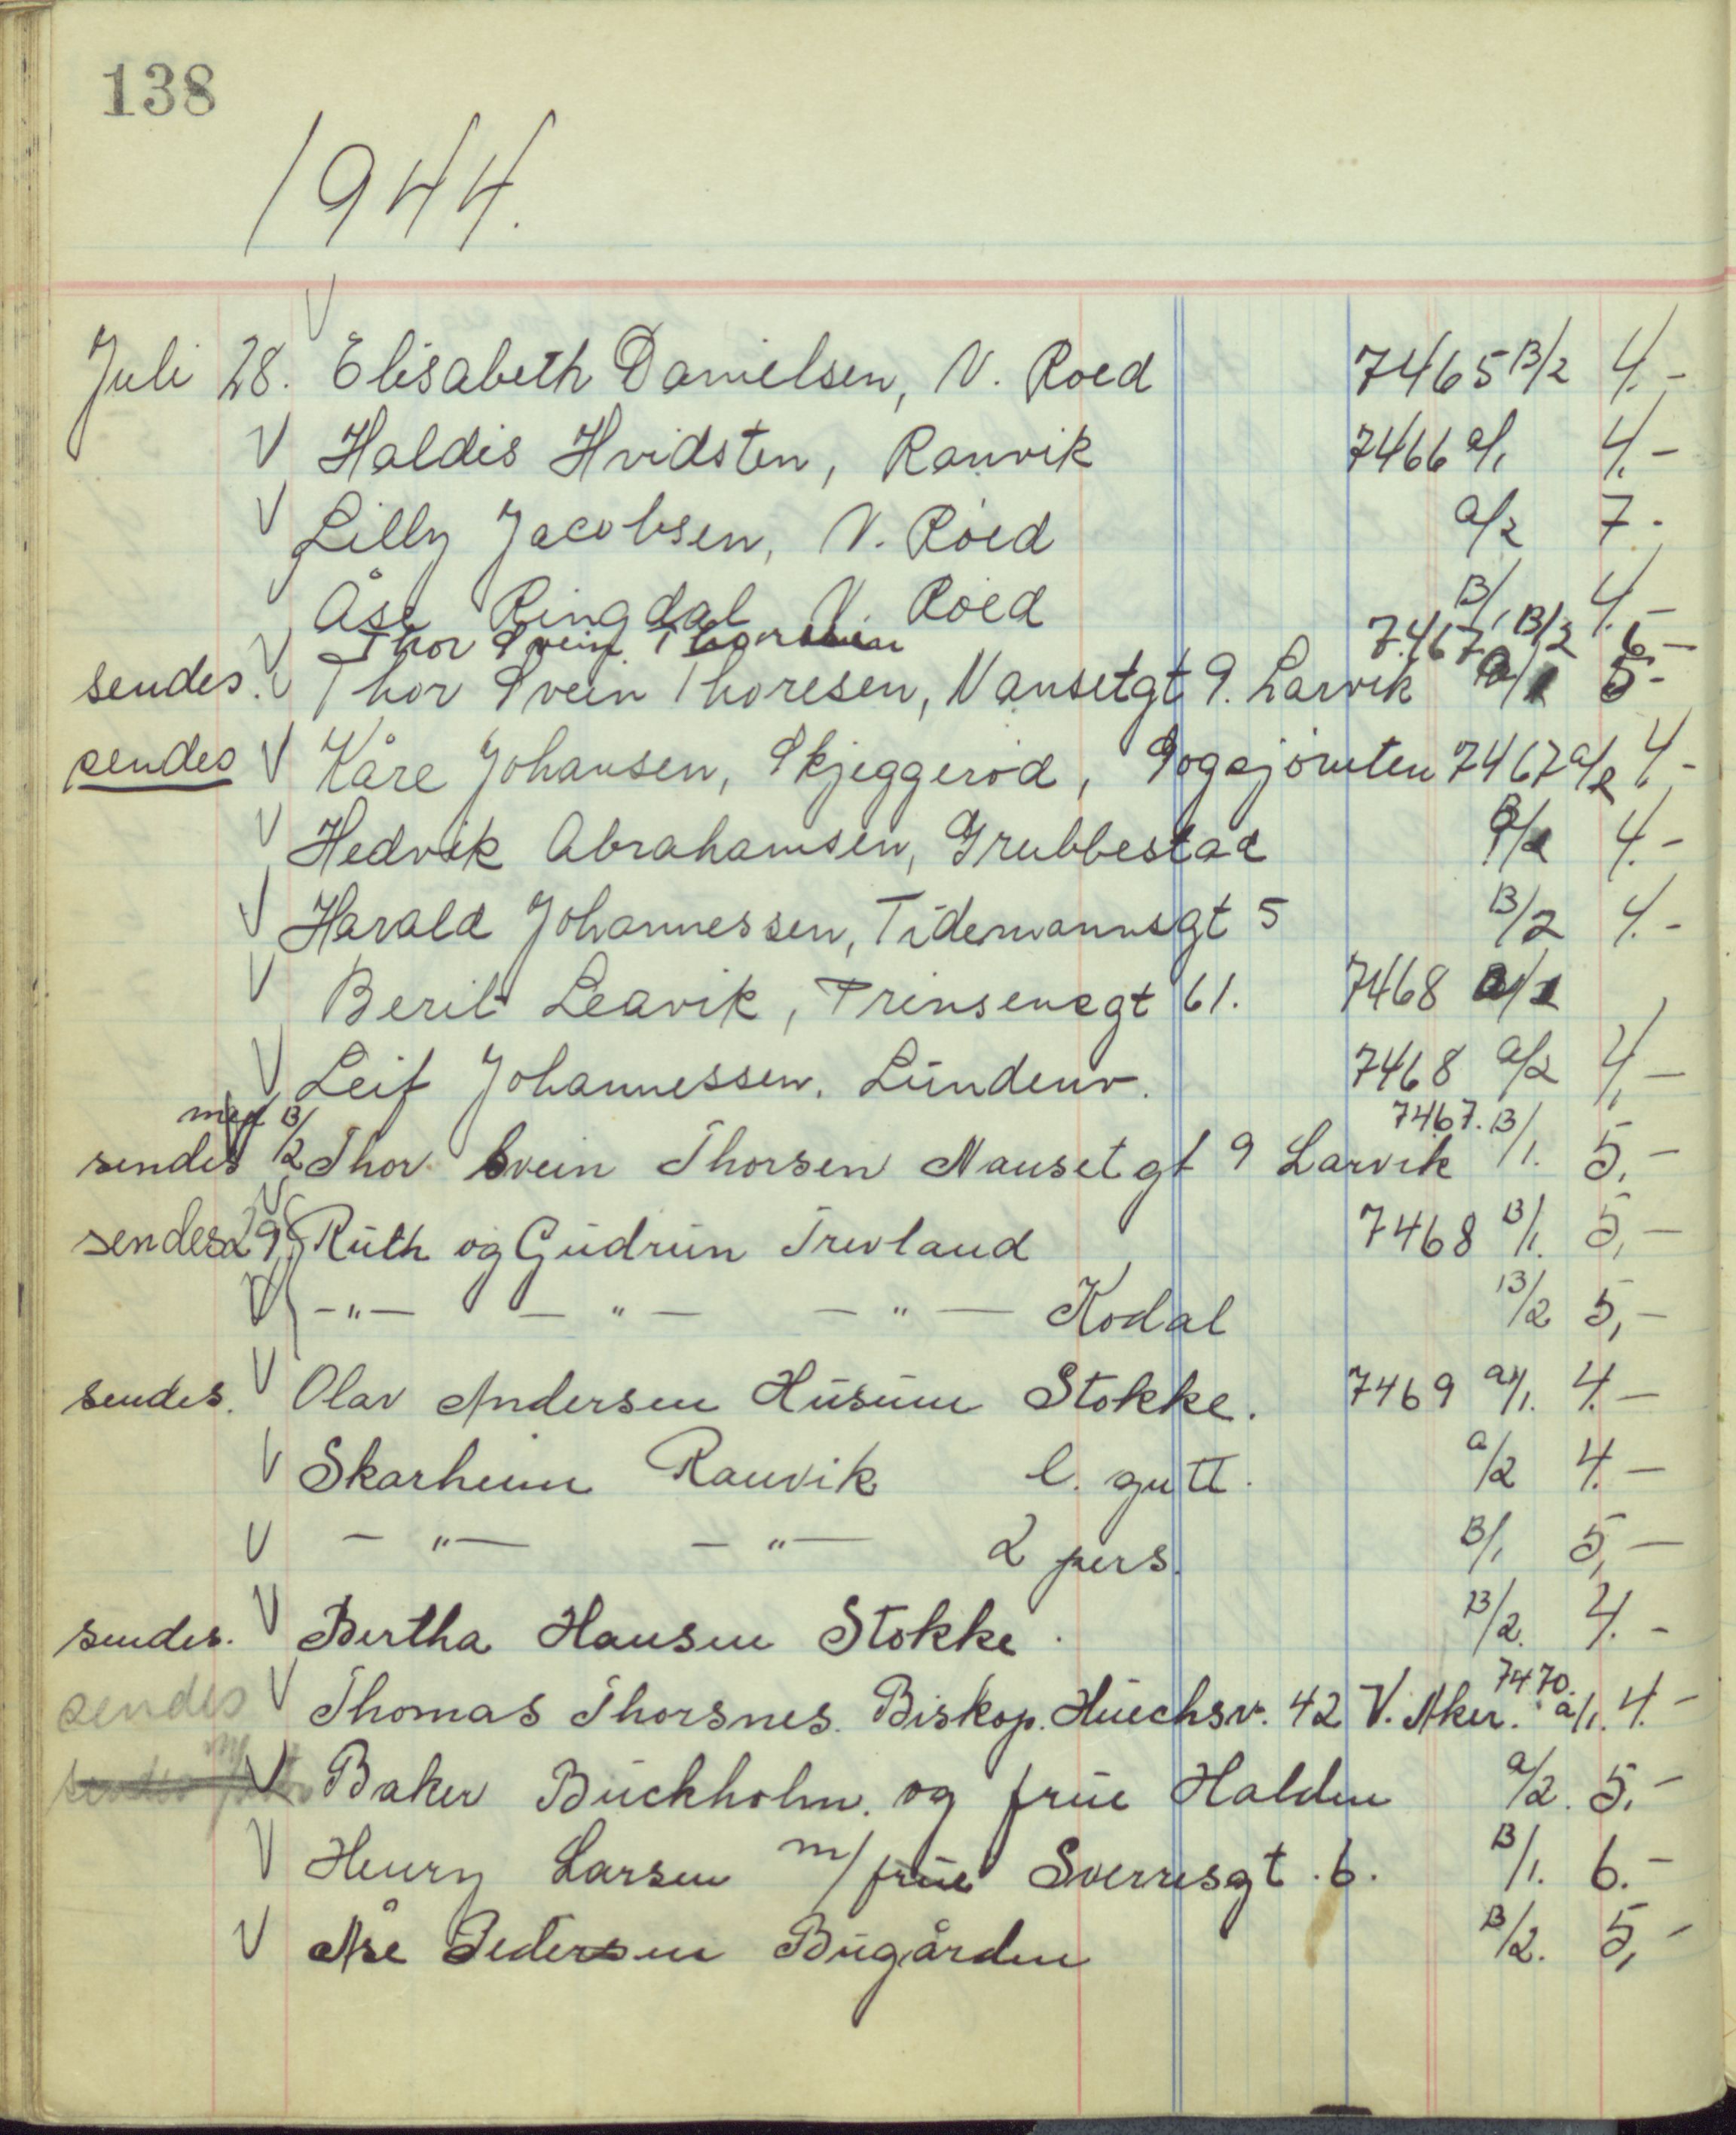 138
1944.
V
Juli 28. Elisabeth Danielsen, N. Roed 7465 B/2 4.-
V Haldis Hvidsten, Ranvik 7466 a/1 4.-
V Lilly Jacobsen, N. Roed a/2 7.-
V Åse Ringdal N. Roed B/1 4.-
Thor Svein Thoresen 7467 B/2 6-
sendes. V Thor Svein Thoresen, Nansetgt 9. Larvik 5-
sendes V Kåre Johansen, Skjeggerød, Gogsjøruten 7467 a/2 4.-
V Hedvik Abrahamsen, Grubbestad 4.-
V Harald Johannessen, Tidemannsgt 5 B/2 4.-
V Berit Leavik, Prinsensgt 61. 7468
V Leif Johannessen. Lundenv. 7468 a/2 4,-
med B/2 7467. B/1.
sendes Thor Svein Thorsen Nansetgt 9 Larvik 5,-
sendes 29. Ruth og Gudrun Trevland 7468 B/1. 5,-
V -"- -"- -"- Kodal B/2 5,-
sendes. V Olav Andersen Husum Stokke. 7469 a/1. 4.-
V Skarheim Ranvik l. gutt. a/2 4.-
V -"- -"- 2 pers. B/1 5,-
sendes. V Bertha Hansen Stokke. B/2. 4.-
sendes V Thomas Thorsnes. Biskop. Huechsv. 42 V. Aker. 7470. a/1. 4.-
sendes V Baker Buckholm. og frue Halden a/2. 5.-
V Henry Larsen m/frue Sverresgt. 6. B/1. 6.-
V Åse Pedersen Bugården B/2. 5,-